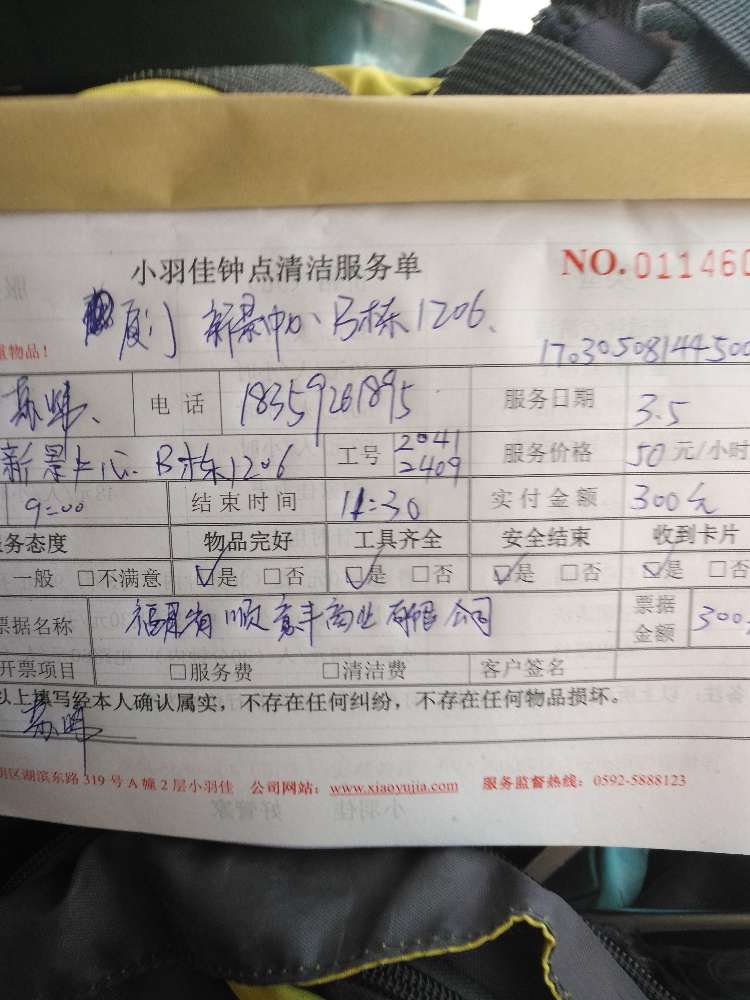 小羽佳钟点清洁服务单 NO.011460
厦门 新景中心 B栋1206、
物品! 1703050814450
电话 18359261895 服务日期 3.5
新景中心 B栋1206 工号 2041 2409 服务价格 50元/小时
9:00 结束时间 11:30 实付金额 300元
务态度 物品完好 工具齐全 安全结束 收到卡片
一般 □不满意 ☑是 □否 ☑是 □否 ☑是 □否 ☑是 □否
票据名称 福建省顺意丰商业有限公司 票据金额 300
开票项目 □服务费 □清洁费 客户签名
以上填写经本人确认属实,不存在任何纠纷,不存在任何物品损坏。
明区湖滨东路319号A幢2层小羽佳 公司网站:www.xiaoyujia.com 服务监督热线:0592-5888123